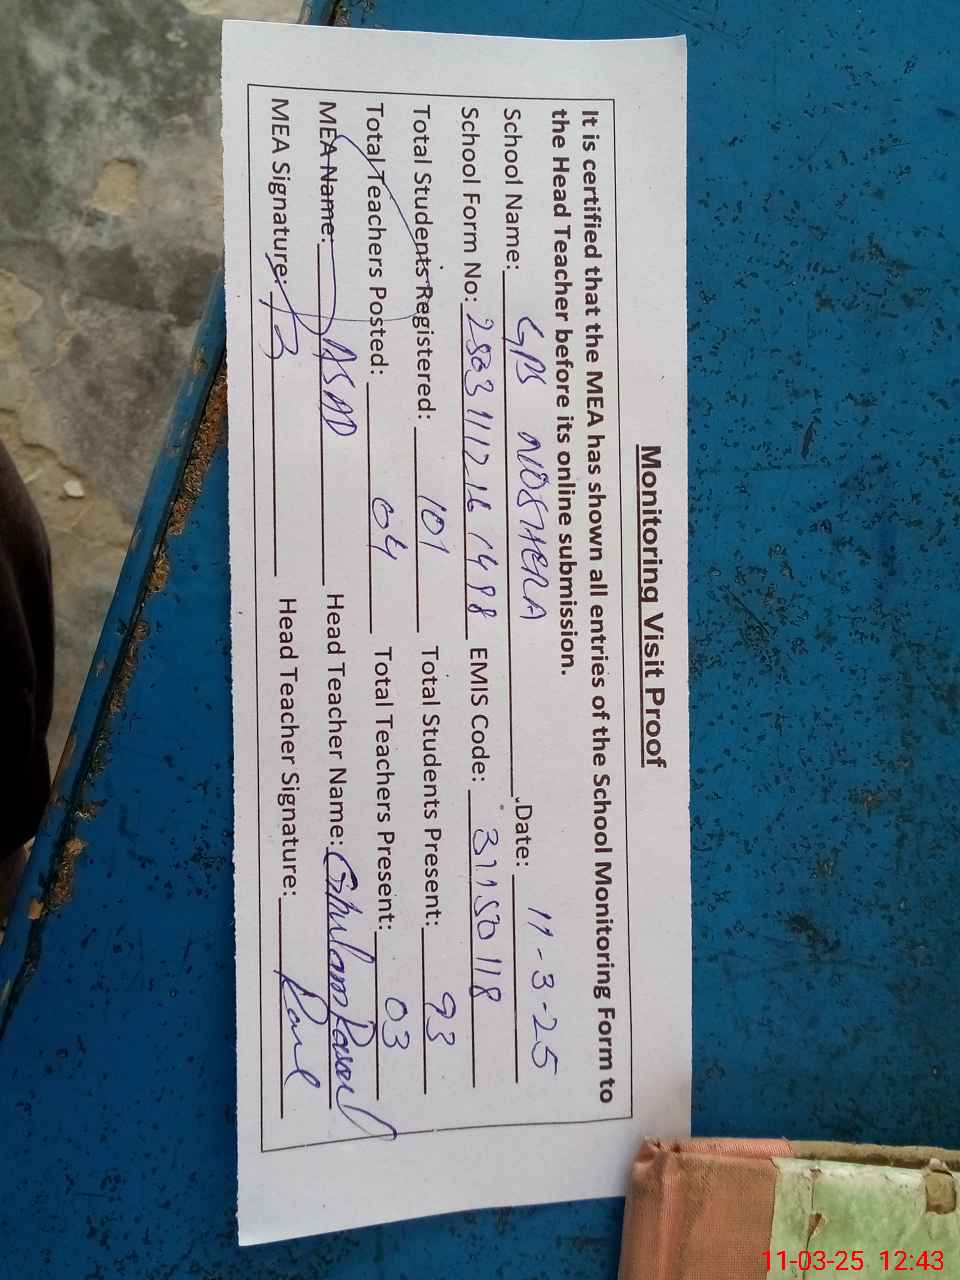 Monitoring Visit Proof
It is certified that the MEA has shown all entries of the School Monitoring Form to
the Head Teacher before its online submission.
School Name: GPS NOSHERA Date: 11-3-25
School Form No: EMIS Code: 31150118
Total Students Registered: 101 Total Students Present: 93
Total Teachers Posted: 04 Total Teachers Present: 03
MEA Name: ASAD Head Teacher Name: Ghulam Rasool
MEA Signature: Head Teacher Signature:
11-03-25 12:43